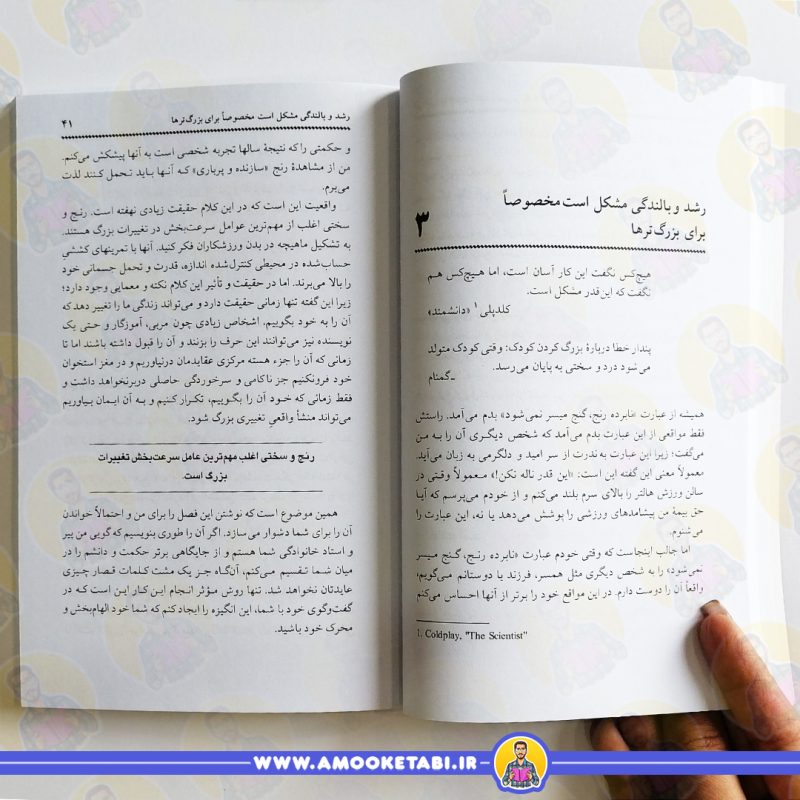 ۳
رشد و بالندگی مشکل است مخصوصاً
برای بزرگ‌ترها
هیچ‌کس نگفت این کار آسان است، اما هیچ‌کس هم
نگفت که این‌قدر مشکل است.
کلدپلی۱ «دانشمند»
پندار خطا دربارهٔ بزرگ کردن کودک: وقتی کودک متولد
می‌شود درد و سختی به پایان می‌رسد.
ـ گمنام
همیشه از عبارت «نابرده رنج، گنج میسر نمی‌شود» بدم می‌آمد. راستش
فقط مواقعی از این عبارت بدم می‌آمد که شخص دیگری آن را به من
می‌گفت؛ زیرا این عبارت به‌ندرت از سر امید و دلگرمی به زبان می‌آید.
معمولاً معنی این گفته این است: «این قدر ناله نکن!» معمولاً وقتی در
سالن ورزش هالتر را بالای سرم بلند می‌کنم و از خودم می‌پرسم که آیا
حق بیمهٔ من پیشامدهای ورزشی را پوشش می‌دهد یا نه، این عبارت را
می‌شنوم.
اما جالب اینجاست که وقتی خودم عبارت «نابرده رنج، گنج میسر
نمی‌شود» را به شخص دیگری مثل همسر، فرزند یا دوستانم می‌گویم؛
واقعاً آن را دوست دارم. در این مواقع خود را برتر از آنها احساس می‌کنم
1. Coldplay, "The Scientist"
رشد و بالندگی مشکل است مخصوصاً برای بزرگ‌ترها ۴۱
و حکمتی را که نتیجهٔ سالها تجربه شخصی است به آنها پیشکش می‌کنم.
من از مشاهدهٔ رنج «سازنده و پرباری» که آنها باید تحمل کنند لذت
می‌برم.
واقعیت این است که در این کلام حقیقت زیادی نهفته است. رنج و
سختی اغلب از مهم‌ترین عوامل سرعت‌بخش در تغییرات بزرگ هستند.
به تشکیل ماهیچه در بدن ورزشکاران فکر کنید. آنها با تمرینهای کششیِ
حساب‌شده در محیطی کنترل‌شده اندازه، قدرت و تحمل جسمانی خود
را بالا می‌برند. اما در حقیقت و تأثیر این کلام نکته و معمایی وجود دارد؛
زیرا این گفته تنها زمانی حقیقت دارد و می‌تواند زندگی ما را تغییر دهد که
آن را به خود بگوییم. اشخاص زیادی چون مربی، آموزگار و حتی یک
نویسنده نیز می‌توانند این حرف را بزنند و آن را قبول داشته باشند اما تا
زمانی که آن را جزء هسته مرکزی عقایدمان درنیاوریم و در مغز استخوان
خود فرونکنیم جز ناکامی و سرخوردگی حاصلی دربرنخواهد داشت و
فقط زمانی که خود آن را بگوییم، تکرار کنیم و به آن ایمان بیاوریم
می‌تواند منشأ واقعیِ تغییری بزرگ شود.
رنج و سختی اغلب مهم‌ترین عامل سرعت‌بخش تغییرات
بزرگ است.
همین موضوع است که نوشتن این فصل را برای من و احتمالاً خواندن
آن را برای شما دشوار می‌سازد. اگر آن را طوری بنویسم که گویی من پیر
و استاد خانوادگی شما هستم و از جایگاهی برتر حکمت و دانشم را در
میان شما تقسیم می‌کنم، آن‌گاه جز یک مشت کلمات قصار چیزی
عایدتان نخواهد شد. تنها روش مؤثر انجام این کار این است که در
گفت‌وگوی خود با شما، این انگیزه را ایجاد کنم که شما خود الهام‌بخش و
محرک خود باشید.
WWW.AMOOKETABI.IR